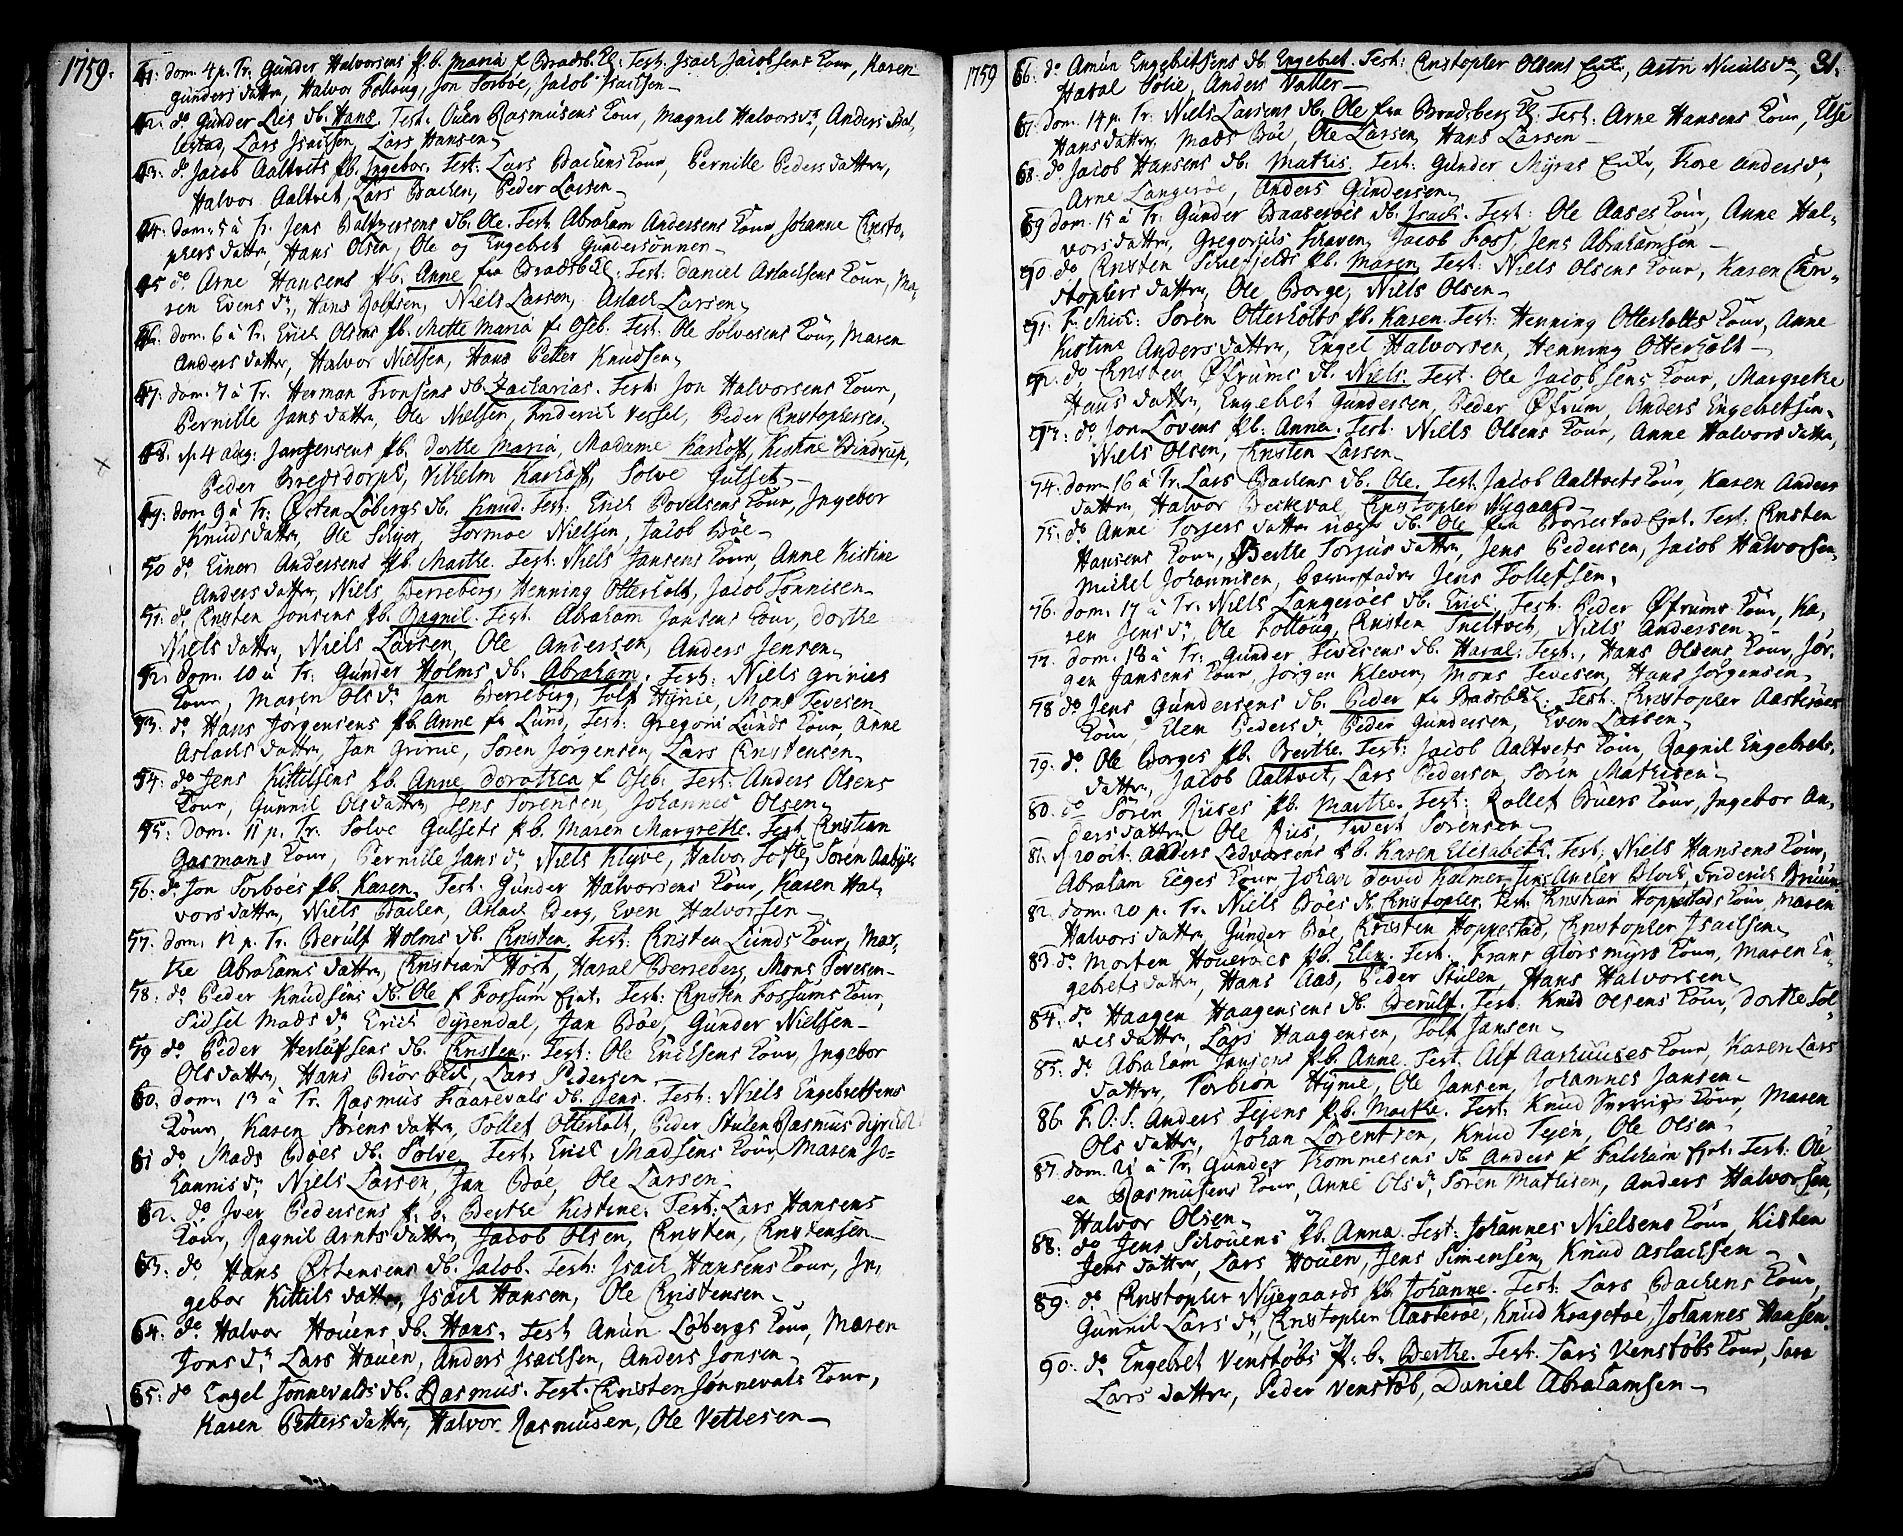 1759.
41. dom. 4 p. Tr. Günder Halvorsens fb. Maria f Bradsb. Cl: Test: Isach Jacobsens Kour, Karen
Günders datter, Halvor Follaug, Jon Torboe, Jacob Isachsen
42. do Günder Lies db. Hans. Test. Ouen Rasmüsens Kour, Magnil Halvorsdr, Anders Bal,
lestad, Lars Isachsen, Lars Hansen
43. do Jacob Aaltvets fb. Ingebor. Test: Lars Backens Kour, Pernille Peders datter,
Halvor Aaltvet, Lars Backen, Peder Larsen
44. dom. 5 à Tr. Jens Baltzersens db. Ole. Test. Abraham Andersens Kour, Johanne Cristo-
phers datter, Hans Olsen, Ole og Engebet Gündersønner
45 do Arne Hansens fb. Anne fra Bradsb. Cl. Test: Daniel Aslachsens Kour, Ma-
ren Evens dr, Hans Rolfsen, Niels Larsen, Aslach Larsen
46. dom. 6 à Tr. Erich Olsens fb. Mette Maria fr Oseb. Test. Ole Solvesens Kour, Maren
Anders datter, Halvor Nielsen, Hans Petter Knudsen
47. dom. 7 à Tr. Herman Fronsens db. Zacharias. Test: Jon Halvorsens Kour,
Pernille Jans datter, Ole Nielsen, Friderich Vessel, Peder Cristophersen
48. d. 4 aug: Jan Jensens fb. Dorthe Maria, Madame Karloff, Kistine Bindrup,
Peder Bregsdorph, Vilhelm Karloff, Solve Gulset
49. dom. 9 à Tr. Østen Løbergs db. Knud. Test: Erich Povelsens Kour, Ingebor
Knuds datter, Ole Schyer, Tormoe Nielsen, Jacob Bøe
50 do Einer Andersens fb. Marthe. Test: Niels Jansens Kour, Anne Kistine
Anders datter, Niels Berreberg, Henning Otterholt, Jacob Tonnisen
51. do Cristen Jonsens fb. Ragnil. Test. Abraham Jansens Kour, Dorthe
Niels datter, Niels Larsen, Ole Andersen, Anders Jensen
52. dom. 10 à Tr: Günder Holms db. Abraham. Test: Niels Grinies
Kour, Maren Ols dr, Jan Berreberg, Tolf Hynie, Mons Tevesen
53. do Hans Jørgensens fb. Anne fr Lund, Test: Gregori Lunds Kour, Anne
Aslachs datter, Jan Grinie, Søren Jørgensen, Lars Cristensen
54: do Jens Kittilsens fb. Anne Dorothea f Oseb. Test: Anders Olsens
Kour, Gunnil Olsdatter, Jens Sørensen, Johannes Olsen
55: dom. 11 p. Tr. Solve Gulsets fb. Maren Margrethe. Test Cristian
Gasmans Kour, Pernille Jans dr, Niels Klyve, Halvor Tofte, Søren Aabyes
56: do Jon Torboes fb. Karen, Test. Günder Halvorsens Kour, Karen Hal,
vors datter, Niels Backen, Aslach Berg, Even Halvorsen
57: dom. 12 p. Tr. Berulf Holms db. Cristen. Test: Cristen Lunds Kour, Mar,
the Abrahams datter, Cristian Holt, Haral Berreberg, Mons Tevesen
58: do Peder Knudsens db. Ole f Fossum Ejnt. Test: Cristen Fossums Kour,
Sidsel Mads dr, Erich Dyrendal, Jan Bøe, Günder Nielsen
59 do Peder Herlofsens db. Cristen. Test: Ole Erichsens Kour, Ingebor
Olsdatter, Hans Biørbech, Lars Pedersen
60. dom. 13 à Tr. Rasmus Faarevals db. Jens. Test: Niels Engebretsens
Kour, Karen Sørens datter, Tollef Otterholt, Peder Stulen, Rasmus Dyrendal
61 do Mads Bøes db. Solve, Test: Erich Madsens Kour, Maren Jo-
hannis dr, Niels Larsen, Jan Bøe, Ole Larsen
62. do Iver Pedersens f. b. Berthe Kistine. Test: Lars Hansens
Kour, Ragnil Arnts datter, Jacob Olsen, Cristen, Cristensen
63. do Hans Østensens db. Jacob. Test: Isach Hansens Kour, In,
gebor Kittils datter, Isach Hansen, Ole Cristensen
64. do Halvor Houens db. Hans. Test Amun Løbergs Kour, Maren
Jons dr, Lars Houen, Anders Isachsen, Anders Jonsen
65: do Engel Jonnevalds db. Rasmus. Test: Cristen Jønnevals Kour,
Karen Petters datter, Halvor Rasmusen, Ole Vettesen
1759
31.
66. do Amun Engebretsens db. Engebret. Test: Cristopher Olsens Ent, Astri Niuils dr
Haral Solie, Anders Valler
67. dom. 14 p. Tr. Niels Larsens db. Ole fra Bradsberg Cl: Test: Arne Hansens Kour, Else
Hans datter, Mads Bøe, Ole Larsen, Hans Larsen
68. do Jacob Hansens db. Mathis. Test: Günder Myras Ent, Thore Anders dr,
Arne Langerøe, Anders Gündersen
69 dom. 15 à Tr: Günder Baaserøes db. Isach. Test: Ole Aases Kour, Anne Hal-
vors datter, Gregorius Schaven, Jacob Foss, Jens Abrahamsen
70. do Cristen Schiefields fb. Maren. Test: Niels Olsens Kour, Karen Cri-
stophers datter, Ole Borge, Niels Olsen
71. F. Mich: Søren Otterholts fb. Karen. Test: Henning Otterholts Kour, Anne
Kistine Anders datter, Engel Halvorsen, Henning Otterholt
72. do Cristen Øfrums db. Niels. Test: Ole Jacobsens Kour, Margrethe
Hans datter, Engebet Gündersen, Peder Øfrum, Anders Engebetsen
73: do Jon Lovens fb. Annea. Test: Niels Olsens Kour, Anne Halvors datter,
Niels Olsen, Cristen Larsen
74. dom. 16 à Tr. Lars Backens db. Ole. Test. Jacob Aaltvets Kour, Karen Anders
datter, Halvor Becheval, Cristopher Nygaard
75: do Anne Torgers datter uægte db. Ole fra Borrestad Ejnt. Test: Cristen
Hansens Kour, Berthe Torjus datter, Jens Pedersen, Jacob Halvorsen,
Michel Johannisen, Barnefader Jens Tollefsen,
76. dom. 17 à Tr. Niels Langerøes db. Erich. Test: Peder Øfrums Kour, Ka,
ren Jens dr, Ole Follaug, Cristen Treltvet, Niels Andersen
77. dom. 18 à Tr. Günder Tevesens db. Haral. Test:, Hans Olsens Kour, Jør-
gen Jansens Kour, Jørgen Kleven, Mons Tevesen, Hans Jørgensen
78 do Jens Gündersens db. Peder fr Bradsb. Cl: Test: Cristopher Aasterøes
Kour, Elen Peders dr, Peder Gundersen, Even Larsen
79. do Ole Borges fb. Berthe. Test: Jacob Aaltvets Kour, Ragnil Engebrets-
datter, Jacob Aaltvet, Lars Pedersen, Søren Mathisen
80. do Søren Riises fb. Marthe. Test: Rollef Buers Kour, Ingebor An,
ders datter, Ole Riis, Sivert Sørensen
81. d 20 oct. Anders Ledvorsens fb. Karen Elisabeth. Test. Niels Hansens Kour,
Abraham Lerges Kour, Johan David Kalmer, Jens Ancher Block, Friderich Bruun
82. dom. 20 p. Tr. Niels Bøes db. Cristopher. Test: Cristian Hoppestads Kour, Maren
Halvors datter, Günder Bøe, Cristen Hoppestad, Cristopher Isachsen
83. do Morten Houerøes fb. Elen. Test: Frans Gløsmyrs Kour, Maren En-
gebrets datter, Hans Aas, Peder Stulen, Hans Halvorsen
84. do Haagen Haagensens db. Berulf. Test. Knud Olsens Kour, Dorthe Sol-
ves datter, Lars Haagensen, Tolf Jansen
85. do Abraham Jansens fb. Anne. Test. Alf Aarhuuses Kour, Karen Lars
datter, Torbion Hynie, Ole Jansen, Johannes Jansen
86. F. O. S. Anders Tejens fb. Marthe. Test. Knud Kour, Maren
Ols datter, Johan Lorentzen, Knud Tejen, Ole Olsen
87. dom. 21 à Tr. Günder Trommesens db Anders f Falchum Ejnt: Test: Ole
en Rasmusens Kour, Anne Ols dr, Søren Mathisen, Anders Halvorsen,
Halvor Olsen
88: do Jens Schouens fb. Anna. Test: Johannes Nielsens Kour, Kisten
Jens datter, Lars Houen, Jens Simensen, Knud Aslachsen
89: do Cristopher Nyegaards fb. Johanne. Test: Lars Backens Kour,
Gunnil Lars dr, Cristopher Aasterøe, Knud Kragetøe, Johannes Hansen.
90: do Engebret Venstøbs f. b. Berthe. Test: Lars Venstøbs Kour, Sara
Lars datter, Peder Venstøb, Daniel Abrahamsen